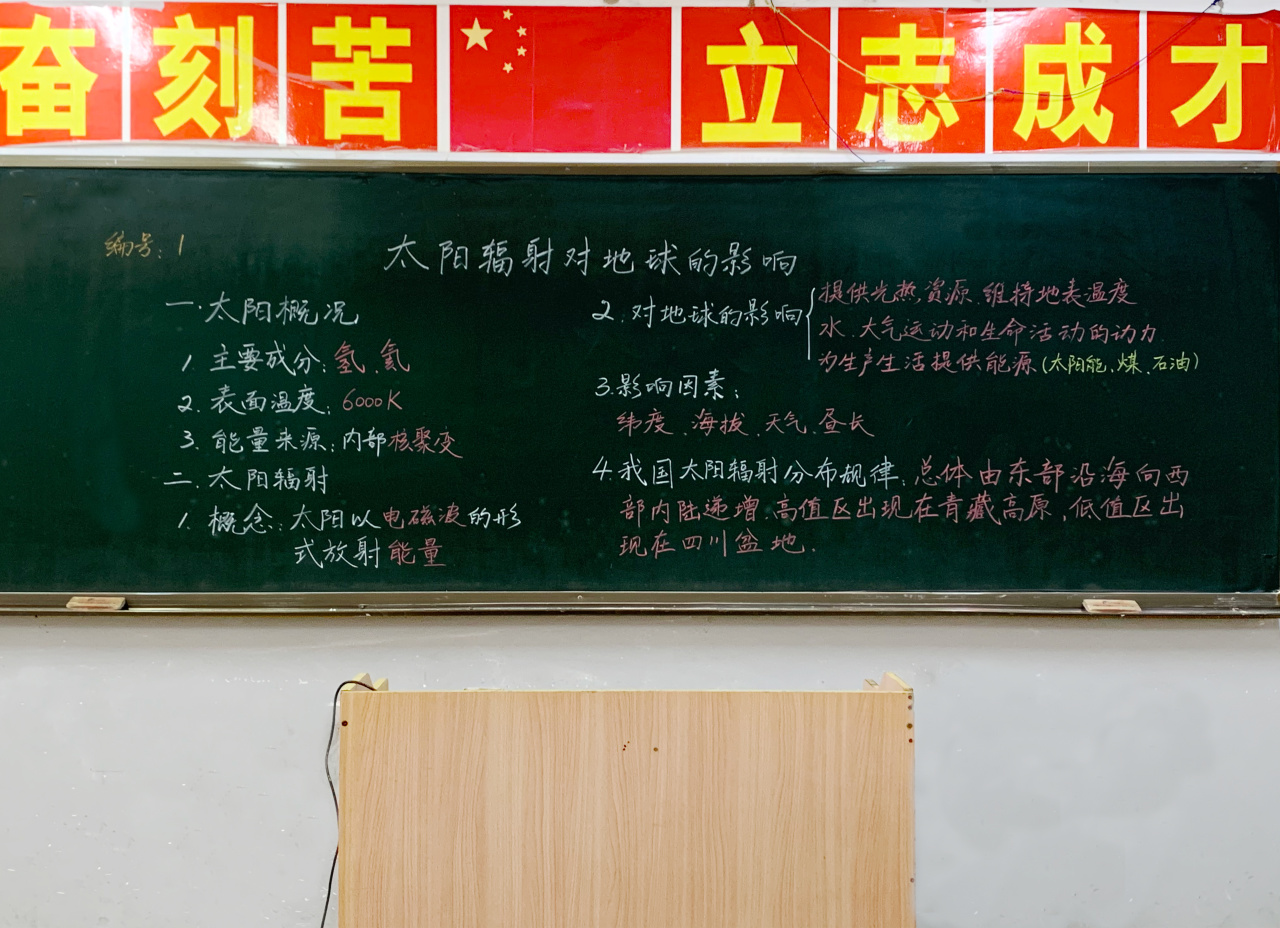 奋刻苦 立志成才
编号:1
太阳辐射对地球的影响
一.太阳概况
1.主要成分:氢、氦
2.表面温度:6000K
3.能量来源:内部核聚变
二.太阳辐射
1.概念:太阳以电磁波的形
式放射能量
2.对地球的影响
提供光热资源.维持地表温度
水、大气运动和生命活动的动力.
为生产生活提供能源(太阳能、煤、石油)
3.影响因素:
纬度、海拔、天气、昼长
4.我国太阳辐射分布规律:总体由东部沿海向西
部内陆递增.高值区出现在青藏高原,低值区出
现在四川盆地.